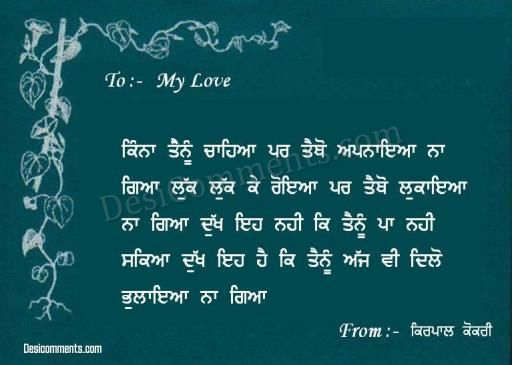 To :- My Love
ਕਿੰਨਾ ਤੈਨੂੰ ਚਾਹਿਆ ਪਰ ਤੈਥੋ ਅਪਨਾਇਆ ਨਾ
ਗਿਆ ਲੁੱਕ ਲੁਕ ਕੇ ਰੋਇਆ ਪਰ ਤੈਥੋ ਲੁਕਾਇਆ
ਨਾ ਗਿਆ ਦੁੱਖ ਇਹ ਨਹੀ ਕਿ ਤੈਨੂੰ ਪਾ ਨਹੀ
ਸਕਿਆ ਦੁੱਖ ਇਹ ਹੈ ਕਿ ਤੈਨੂੰ ਅੱਜ ਵੀ ਦਿਲੋ
ਭੁਲਾਇਆ ਨਾ ਗਿਆ
From :- ਕਿਰਪਾਲ ਕੋਕਰੀ
Desicomments.com
DesiComments.com